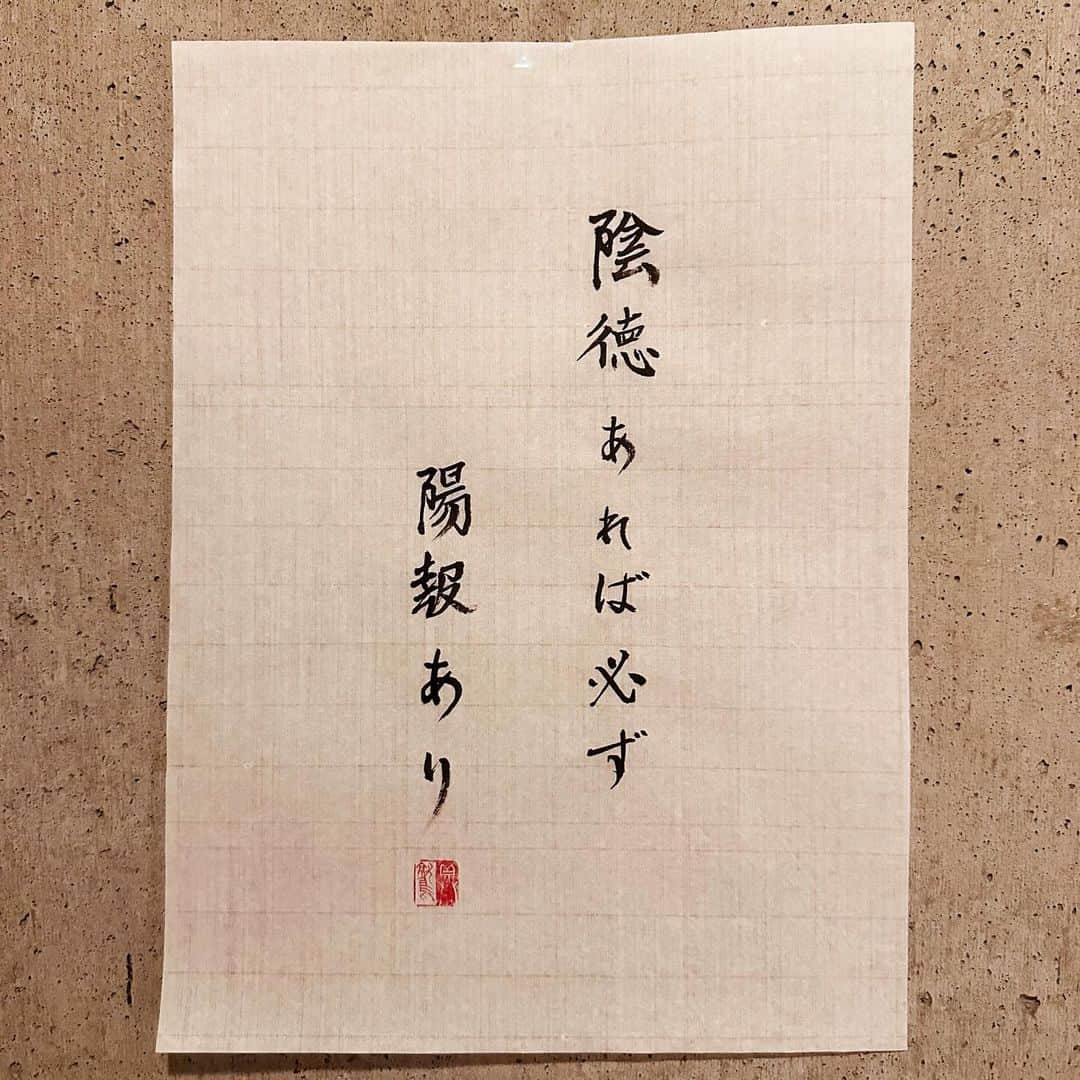 陰徳あれば必ず
陽報あり